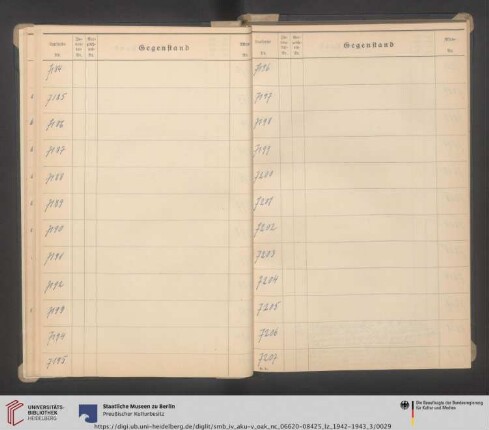 Gegenstand
7184
7185
7186
7187
7188
7189
7190
7191
7192
7193
7194
7195
Gegenstand
7196
7197
7198
7199
7200
7201
7202
7203
7204
7205
7206
7207
UNIVERSITÄTS-
BIBLIOTHEK
HEIDELBERG
Staatliche Museen zu Berlin
Preußischer Kulturbesitz
Die Beauftragte der Bundesregierung
für Kultur und Medien
https://digi.ub.uni-heidelberg.de/diglit/smb_iv_aku-v_oak_nc_06620-08425_lz_1942-1943_3/0029